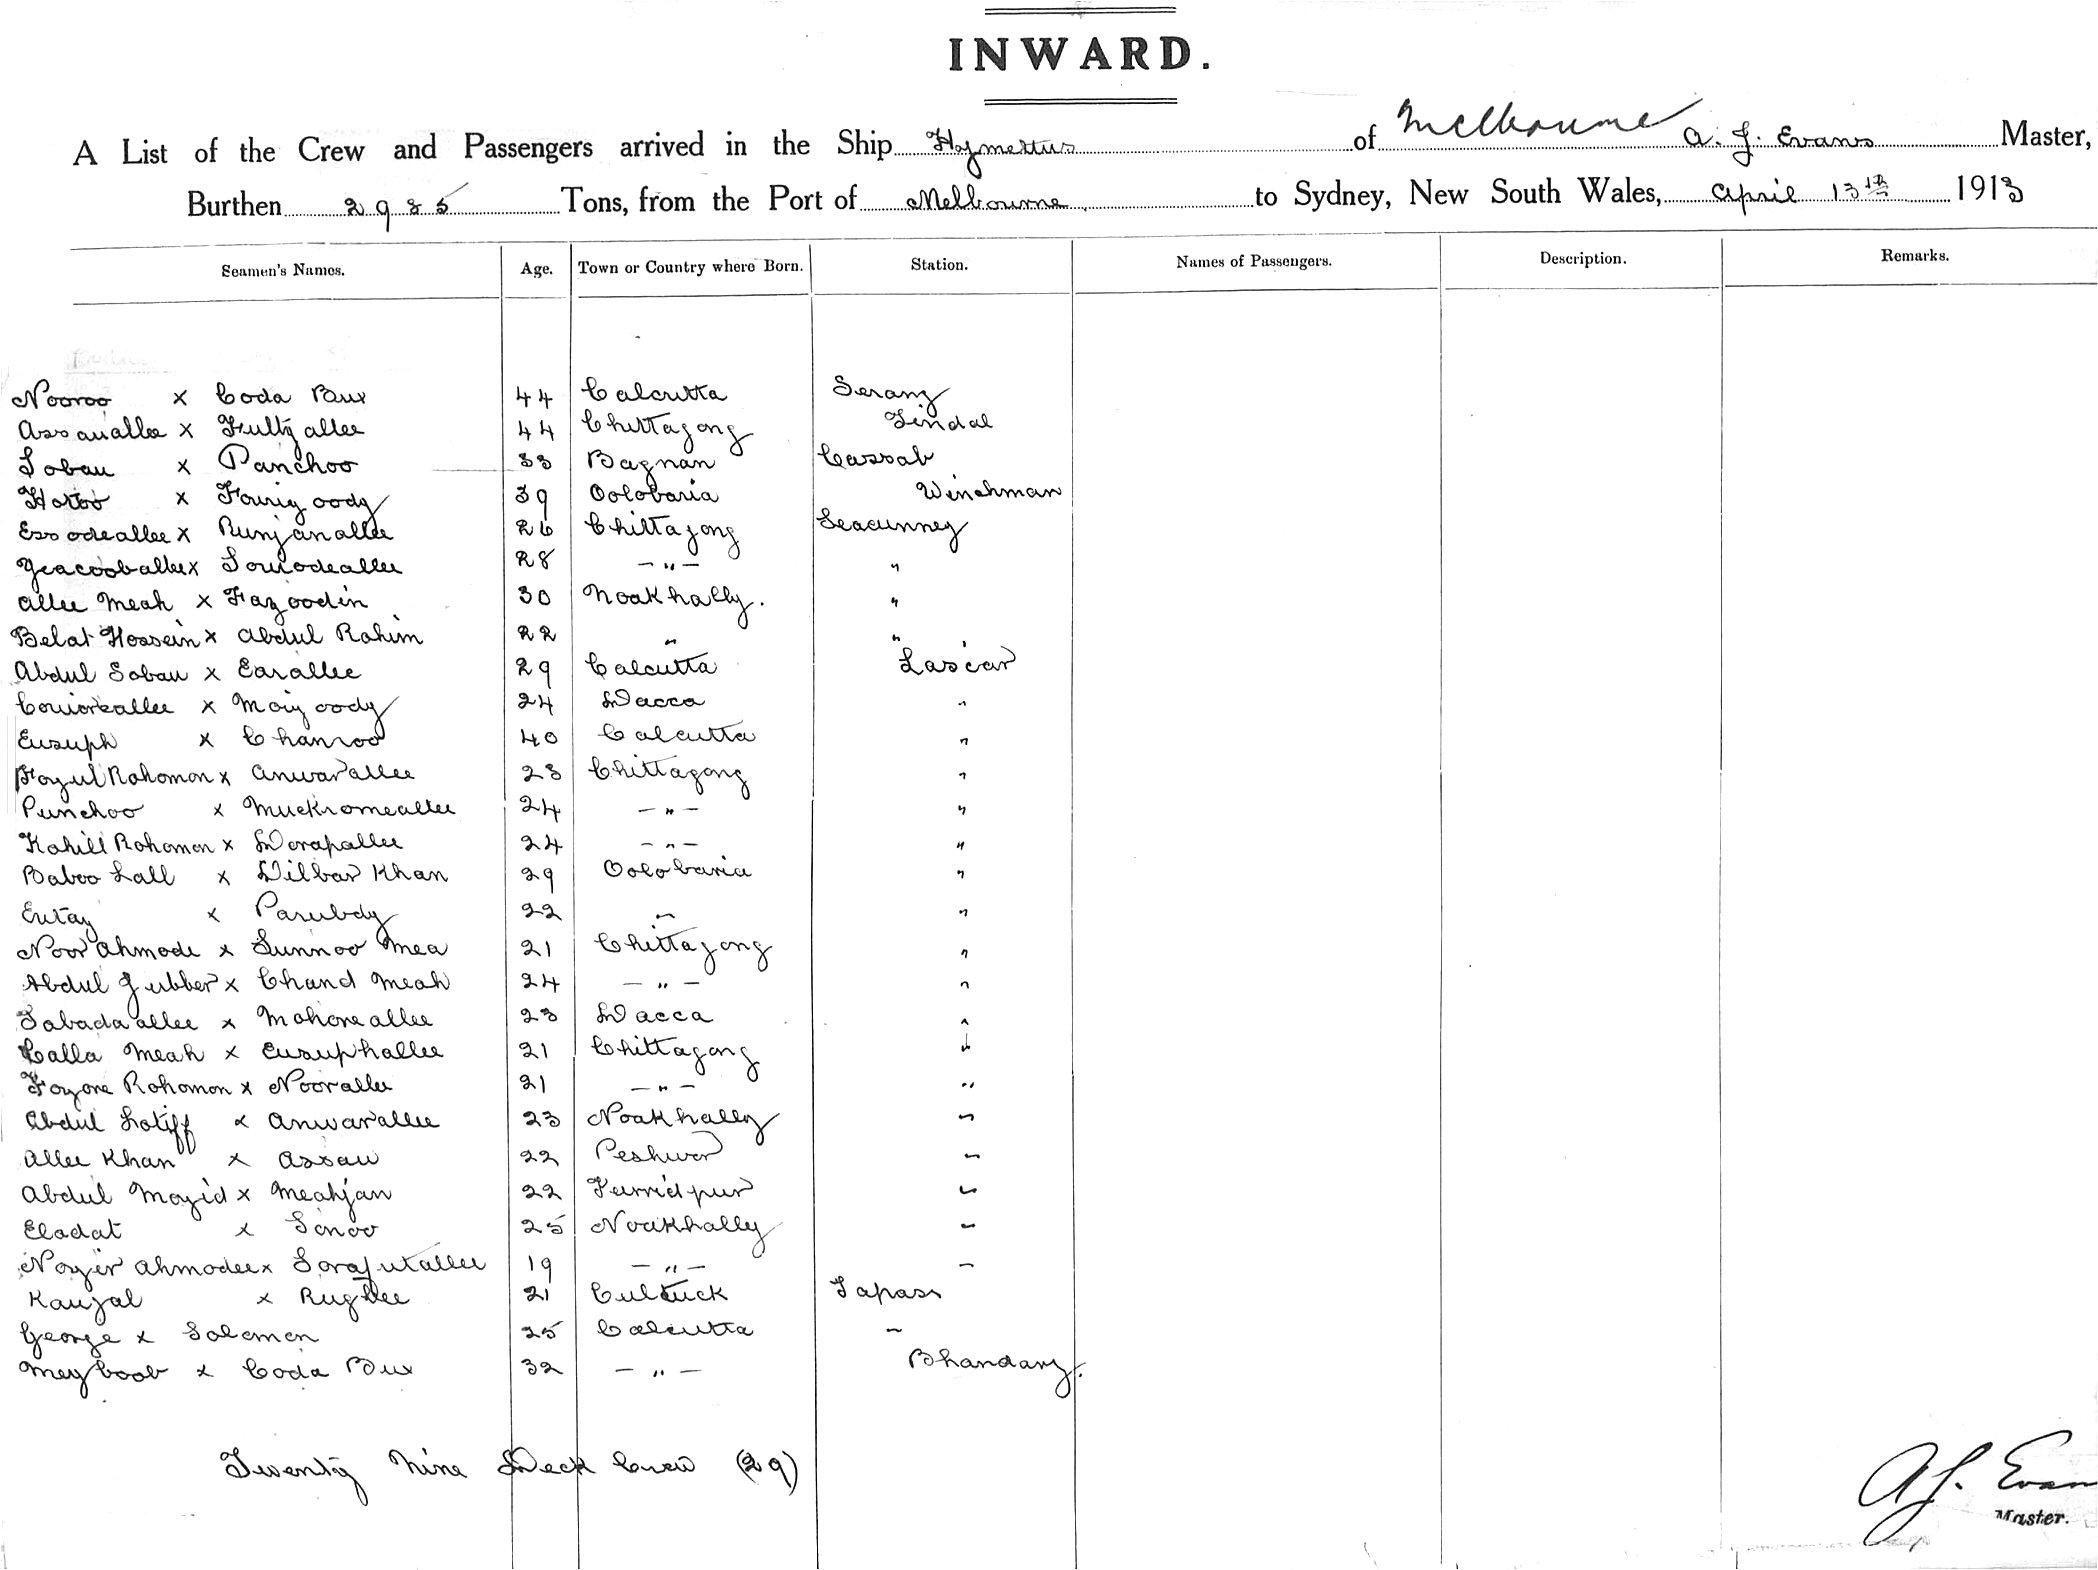 INWARD.
A List of the Crew and Passengers arrived in the Ship Hymettus of Melbourne A. J. Evans Master,
Burthen 2985 Tons, from the Port of Melbourne to Sydney, New South Wales, April 13th 1913
Seamen's Names. Age. Town or Country where Born. Station. Names of Passengers. Description. Remarks.
Nooroo x Coda Bux 44 Calcutta Serang
Assanallee x Fultyallee 44 Chittagong Tindal
Soban x Panchoo 33 Bagnan Cassab
x 39 Oolobaria Winchman
Essodeallee x Runjanallee 26 Chittagong Seacunney
Yeacooballee x 28 – " – "
Allee Meah x Fazoodin 30 Noakhally. "
Belat Hossein x Abdul Rohim 22 " "
Abdul Soban x Earallee 29 Calcutta Lascar
x Moizoody 24 Dacca "
Eusuph x Chanroo 40 Calcutta "
Fozul Rohomon x Anwarallee 23 Chittagong "
Punchoo x Muckromeallee 24 – " – "
Kohill Rohomon x Dorapallee 24 – " – "
Baboo Lall x Dilbar Khan 29 Oolobaria "
x 22 " "
Noor Ahmode x Sunnoo Mea 21 Chittagong "
Abdul Gubber x Chand Meah 24 – " – "
Sabada allee x Mohoreallee 23 Dacca "
Calla Meah x Eusuphallee 21 Chittagong "
Fozone Rohomon x Noorallee 21 – " – "
Abdul Lotiff x Anwarallee 23 Noakhally "
Allee Khan x Assan 22 Peshwor "
Abdul Mozid x Meahjan 22 Furridpur "
Eladat x Sonoo 25 Noakhally "
Nozir Ahmodee x Sorafutallee 19 – " – "
x 21 Cultuck Topass
George x Solomon 25 Calcutta "
Meyboob x Coda Bux 32 – " – Bhandary.
Twenty Nine Deck Crew (29)
A J. Evan
Master.